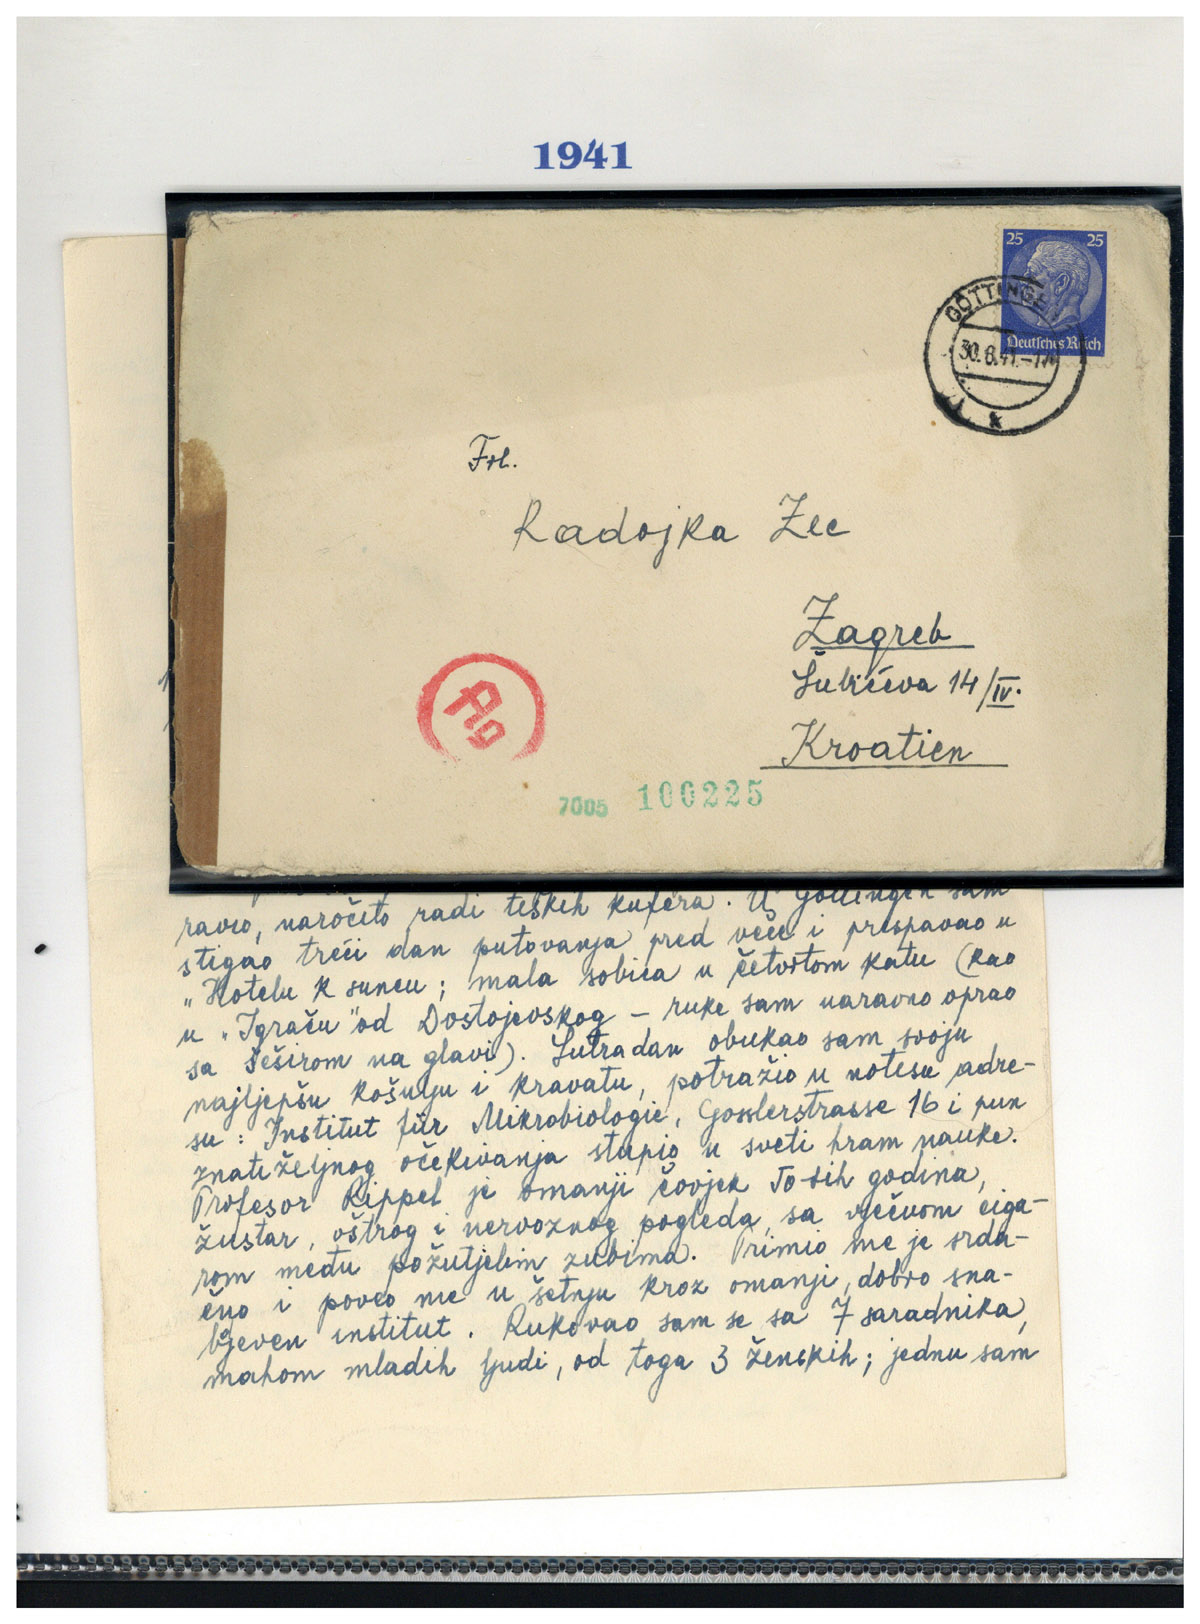 1941
25 25
Deutsches Reich
GÖTTINGE
30.8.41.-17
Frl.
Radojka Zec
Zagreb
Šubićeva 14/IV.
Kroatien
Ag
7005 100225
ravio, naročito radi teških kufera. U Göttingen sam
stigao treći dan putovanja pred veče i prespavao u
"Hotelu k suncu; mala sobica u četvrtom katu (kao
u "Igraču" od Dostojevskog – ruke sam naravno oprao
sa šeširom na glavi). Sutradan obukao sam svoju
najljepšu košulju i kravatu, potražio u notesu adre-
su: Institut für Mikrobiologie, Gosslerstrasse 16 i pun
znatiželjnog očekivanja stupio u sveti hram nauke.
Profesor Rippel je omanji čovjek 50-sih godina,
žustar, oštrog i nervoznog pogleda, sa vječnom ciga-
rom među požutjelim zubima. Primio me je srda-
čno i poveo me u šetnju kroz omanji, dobro sna-
bjeven institut. Rukovao sam se sa 7 saradnika,
mahom mladih ljudi, od toga 3 ženskih; jednu sam